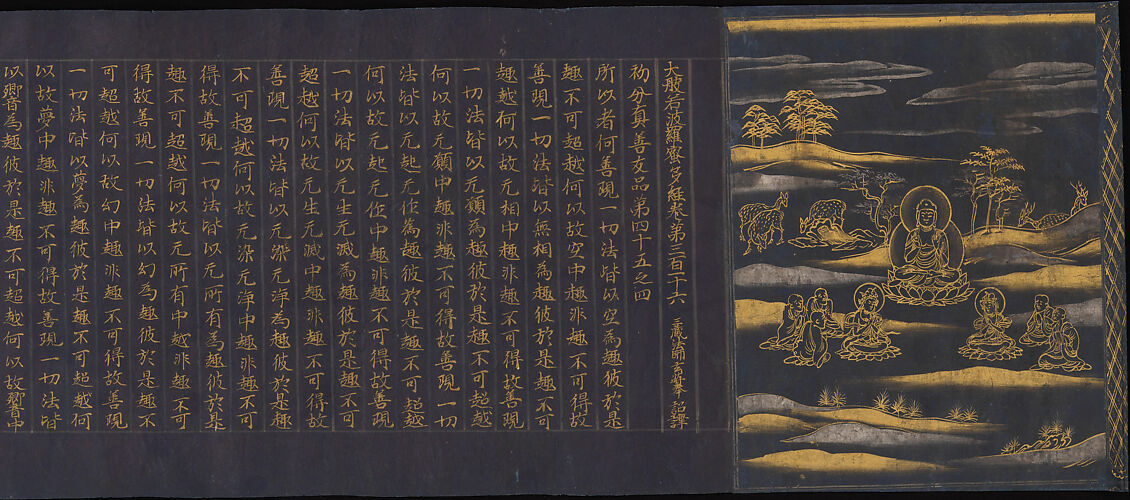 大般若波羅蜜多經卷第三百一十六
三藏法師玄奘奉 詔譯
初分真善友品第四十五之四
所以者何善現一切法皆以空為趣彼於是
趣不可超越何以故空中趣非趣不可得故
善現一切法皆以無相為趣彼於是趣不可
趣越何以故无相中趣非趣不可得故善現
一切法皆以无願為趣彼於是趣不可超越
何以故无願中趣非趣不可得故善現一切
法皆以无起无作為趣彼於是趣不可超越
何以故无起无作中趣非趣不可得故善現
一切法皆以无生无滅為趣彼於是趣不可
超越何以故无生无滅中趣非趣不可得故
善現一切法皆以无染无淨為趣彼於是趣
不可超越何以故无染无淨中趣非趣不可
得故善現一切法皆以无所有為趣彼於是
趣不可超越何以故无所有中趣非趣不可
得故善現一切法皆以幻為趣彼於是趣不
可超越何以故幻中趣非趣不可得故善現
一切法皆以夢為趣彼於是趣不可超越何
以故夢中趣非趣不可得故善現一切法皆
以響為趣彼於是趣不可超越何以故響中